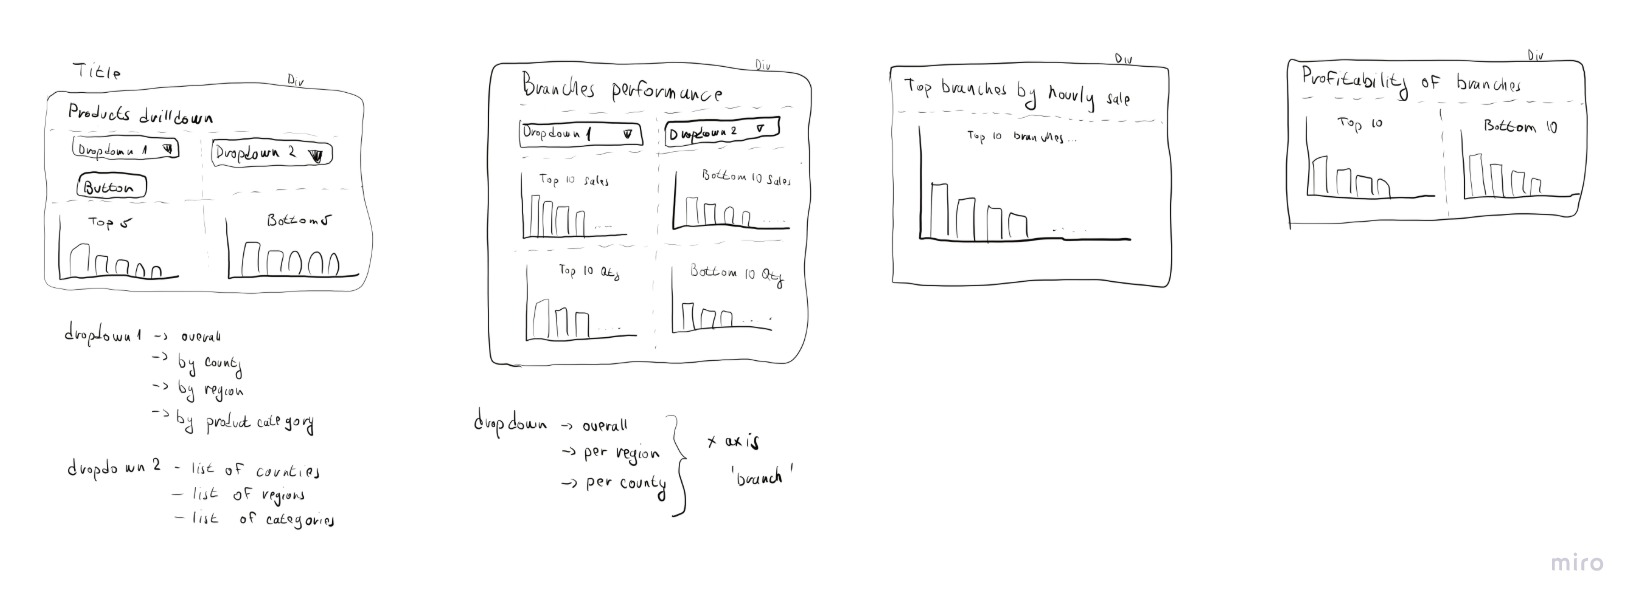 Title
Div
Products drilldown
Dropdown 1
Dropdown 2
Button
Top 5
Bottom 5
dropdown 1 -> overall
-> by county
-> by region
-> by product category
dropdown 2 - list of counties
- list of regions
- list of categories
Div
Branches performance
Dropdown 1
Dropdown 2
Top 10 Sales
Bottom 10 Sales
Top 10 Qty
Bottom 10 Qty
dropdown -> overall
-> per region
-> per county
x axis
'branch'
Div
Top branches by hourly sale
Top 10 branches...
Div
Profitability of branches
Top 10
Bottom 10
miro